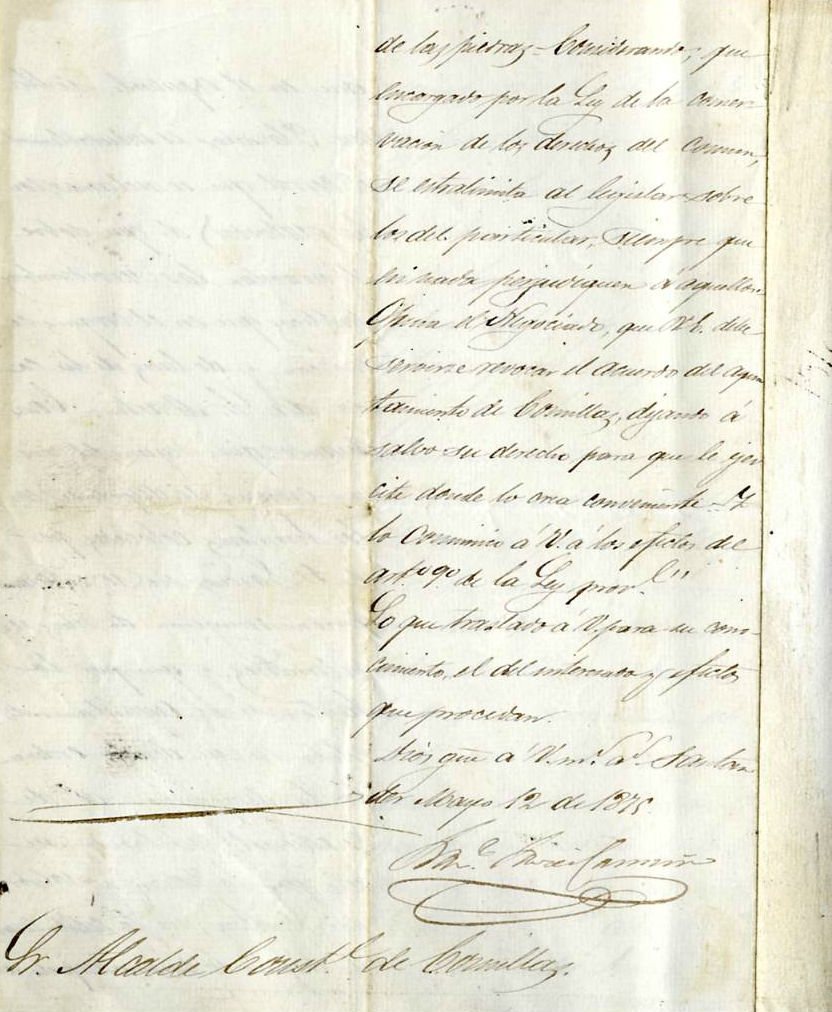 de las piedras – Considerando, que
encargado por la Ley de la conser-
vacion de los derechos del Comun,
se estralimita al legislar sobre
los del particular, siempre que
en nada perjudiquen á aquellos
Opina el Negociado, que V.E. debe
servirse revocar el acuerdo del ayun
tamiento de Comillas, dejando á
salvo su derecho para que le ejer
cite donde lo crea conveniente. – Y
lo comunico á V. á los efectos del
art.º 9º de la Ley prov.l
Lo que traslado á V. para su cono-
cimiento, el del interesado y efectos
que procedan.
Dios gue á V. m.s a.s Santan
der Mayo 12 de 1875.
Sr. Alcalde Const.l de Comillas.